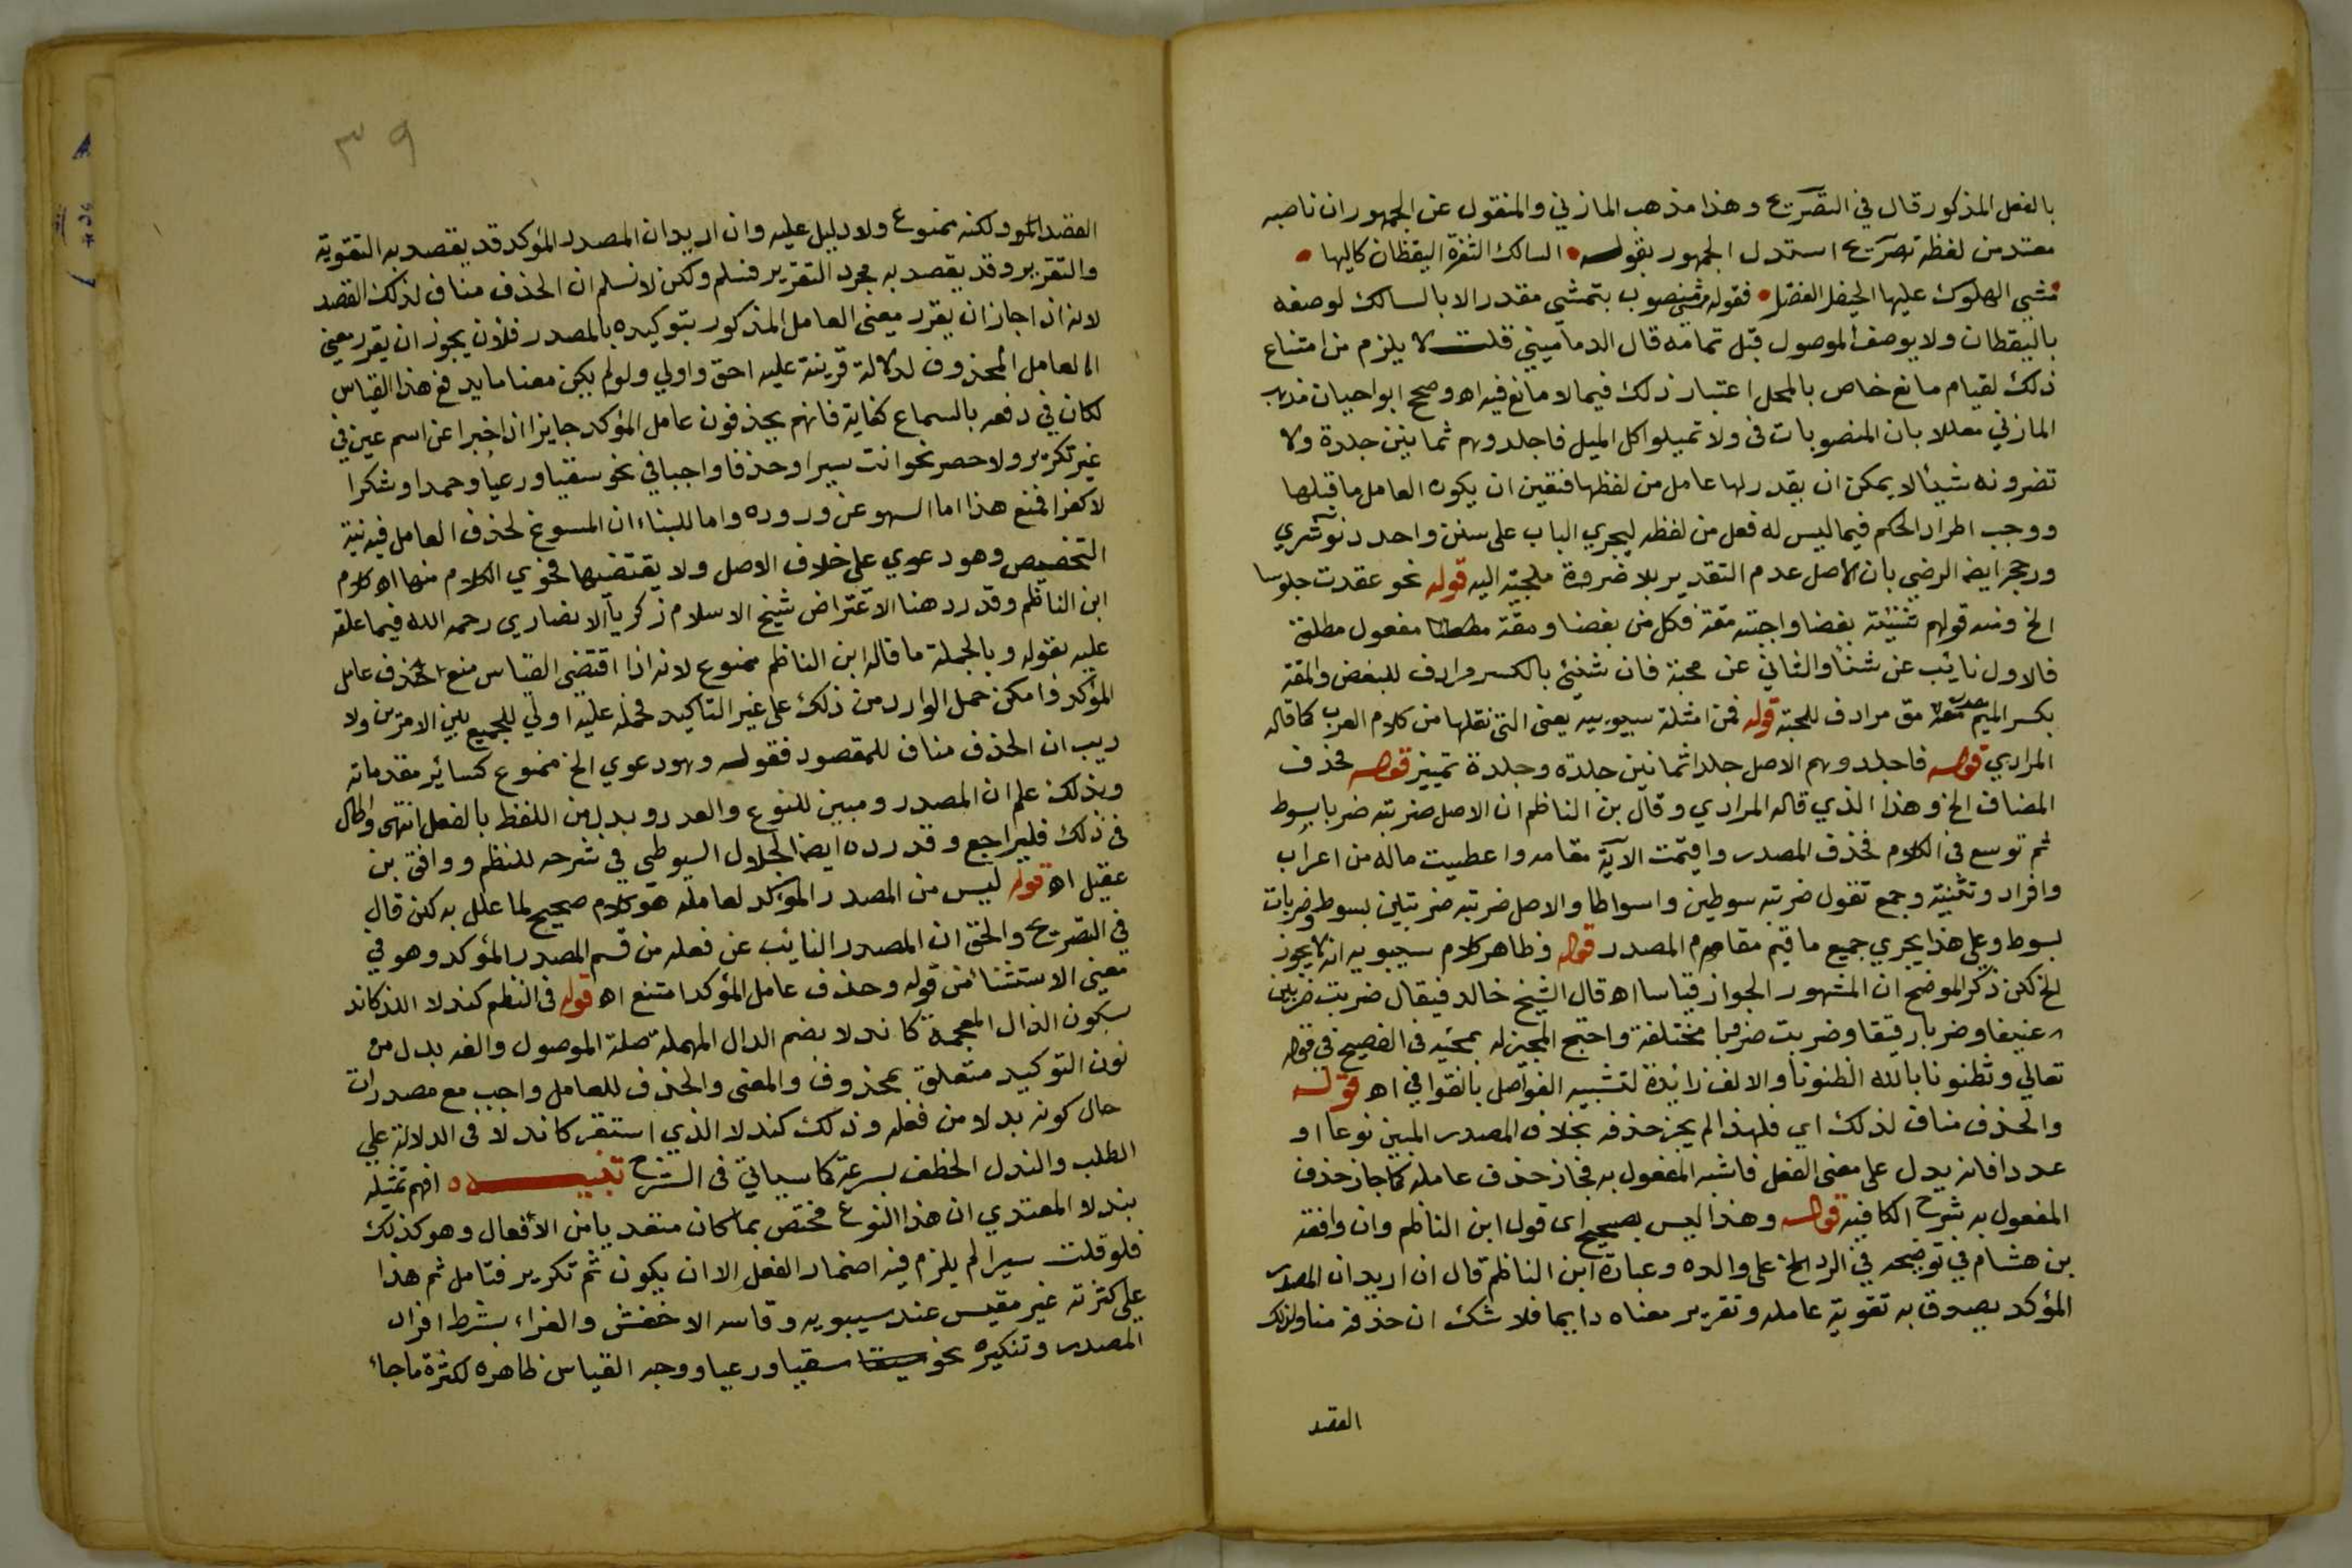 بالفعل المذكور قال في التصريح وهذا مذهب المازني والمنقول عن الجمهور ان ناصبه
مقدر من لفظه تصريح استدل الجمهور بقوله السالك الثغرة اليقظان كاليها
مشي الهلوك عليها الخيعل الفضل فقوله مشي منصوب بتمشي مقدر الا بالسالك لوصفه
باليقظان ولا يوصف الموصول قبل تمامه قال الدماميني قلت لا يلزم من امتناع
ذلك لقيام مانع خاص بالمحل اعتبار ذلك فيما لا مانع فيه اه وصحح ابو احيان مذهب
المازني معللا بان المنصوبات في ولا تميلوا كل الميل فاجلدوهم ثمانين جلدة ولا
تضرونه شيئا لا يمكن ان يقدر لها عامل من لفظها فتعين ان يكون العامل ما قبلها
ووجب اطراد الحكم فيما ليس له فعل من لفظه ليجري الباب على سنن واحد دنوشري
ورجح ايضا الرضي بان الاصل عدم التقدير بلا ضرورة ملجئة اليه قوله نحو عقدت جلوسا
الخ ومنه قولهم شنئته بغضا واحببته مقة فكل من بغضا ومقة مفعول مطلق
فالاول نائب عن شنأ والثاني عن محبة فان شنئي بالكسر مرادف للبغض والمقة
بكسر الميم مصدر ومق مرادف للمحبة قوله فمن امثلة سيبويه يعني التي نقلها من كلام العرب كما قاله
المرادي قوله فاجلدوهم الاصل جلدا ثمانين جلدة وجلدة تمييز قوله فحذف
المضاف الخ وهذا الذي قاله المرادي وقال بن الناظم ان الاصل ضربته ضربا بسوط
ثم توسع في الكلام فحذف المصدر واقيمت الآية مقامه واعطيت ماله من اعراب
وافراد وتثنية وجمع تقول ضربته سوطين واسواطا والاصل ضربته ضربتين بسوط وضربات
بسوط وعلى هذا يجري جميع ما قيم مقام المصدر قوله وظاهر كلام سيبويه انه لا يجوز
الخ لكن ذكر الموضح ان المشهور الجواز قياسا اه قال الشيخ خالد فيقال ضربت ضربين
عنيفا وضربا رقيقا وضربت ضروبا مختلفة واحتج المجيز له بمجيئه في الفصيح في قوله
تعالي وتظنونا بالله الظنونا والالف زائدة لتشبيه الفواصل بالقوافي اه قوله
والحذف مناف لذلك اي فلهذا لم يجز حذفه بخلاف المصدر المبين نوعا او
عددا فانه يدل على معنى الفعل فاشبه المفعول به فجاز حذف عامله كما جاز حذف
المفعول به شرح الكافيه قوله وهذا ليس بصحيح اى قول ابن الناظم وان وافقه
بن هشام في توضيحه في الرد الخ على والده وعبارة ابن الناظم قال ان اريد ان المصدر
المؤكد يصدق به تقوية عامله وتقرير معناه دايما فلا شك ان حذفه مناف لذلك
القصد
٣٩
القصد المر ولكنه ممنوع ولا دليل عليه وان اريد ان المصدر المؤكد قد يقصد به التقوية
والتقرير وقد يقصد به مجرد التقرير فنسلم ولكن لا نسلم ان الحذف مناف لذلك القصد
لانه اذا جاز ان يقرر معنى العامل المذكور بتوكيده بالمصدر فلأن يجوز ان يقرر معني
العامل المحذوف لدلالة قرينة عليه احق واولي ولو لم يكن معنا ما يدفع هذا القياس
لكان في دفعه بالسماع كفاية فانهم يحذفون عامل المؤكد جايزا اذا خبرا عن اسم عين في
غير تكرير ولا حصر نحو انت سيرا وحذفا واجبا في نحو سقيا ورعيا وحمدا وشكرا
لا كفرا فمنع هذا اما السهو عن وروده واما للبناء ان المسوغ لحذف العامل فيه نية
التخصيص وهو دعوي على خلاف الاصل ولا يقتضيها فحوي الكلام منها اه كلام
ابن الناظم وقد رد هنا الاعتراض شيخ الاسلام زكريا الانصاري رحمه الله فيما علقه
عليه بقوله وبالجملة ما قاله ابن الناظم ممنوع لانه اذا اقتضى القياس منع حذف عامل
المؤكد فامكن حمل الوارد من ذلك على غير التاكيد فحمله عليه اولي للجمع بين الامرين ولا
ريب ان الحذف مناف للمقصود فقوله وهو دعوي الخ ممنوع كسائر مقدماته
وبذلك علم ان المصدر ومبين للنوع والعدد وبدل من اللفظ بالفعل انتهى واطال
في ذلك فليراجع وقد رده ايضا الجلال السيوطي في شرحه للنظم ووافق بن
عقيل اه قوله ليس من المصدر المؤكد لعامله هو كلام صحيح لما علل به لكن قال
في التصريح والحق ان المصدر النائب عن فعله من قسم المصدر المؤكد وهو في
معنى الاستثناء من قوله وحذف عامل المؤكد امتنع اه قوله في النظم كندلا اللذ كاند
بسكون الذال المعجمة كاندلا بضم الدال المهملة صلة الموصول والفه بدل من
نون التوكيد متعلق بمحذوف والمعنى والحذف للعامل واجب مع مصدر ات
حال كونه بدلا من فعله وذلك كندلا الذي استقر كاندلا في الدلالة علي
الطلب والندل الخطف بسرعة كما سياتي في الشرح تنبيه افهم تمثيله
بندلا المعتدي ان هذا النوع مختص بما كان متعديا من الافعال وهو كذلك
فلو قلت سيرا لم يلزم فيه اضمار الفعل الا ان يكون ثم تكرير فتامل ثم هذا
على كثرته غير مقيس عند سيبويه وقاسه الاخفش والفراء بشرط افراد
المصدر وتنكيره نحو سقيا ورعيا ووجه القياس ظاهره لكثرة ما جاء